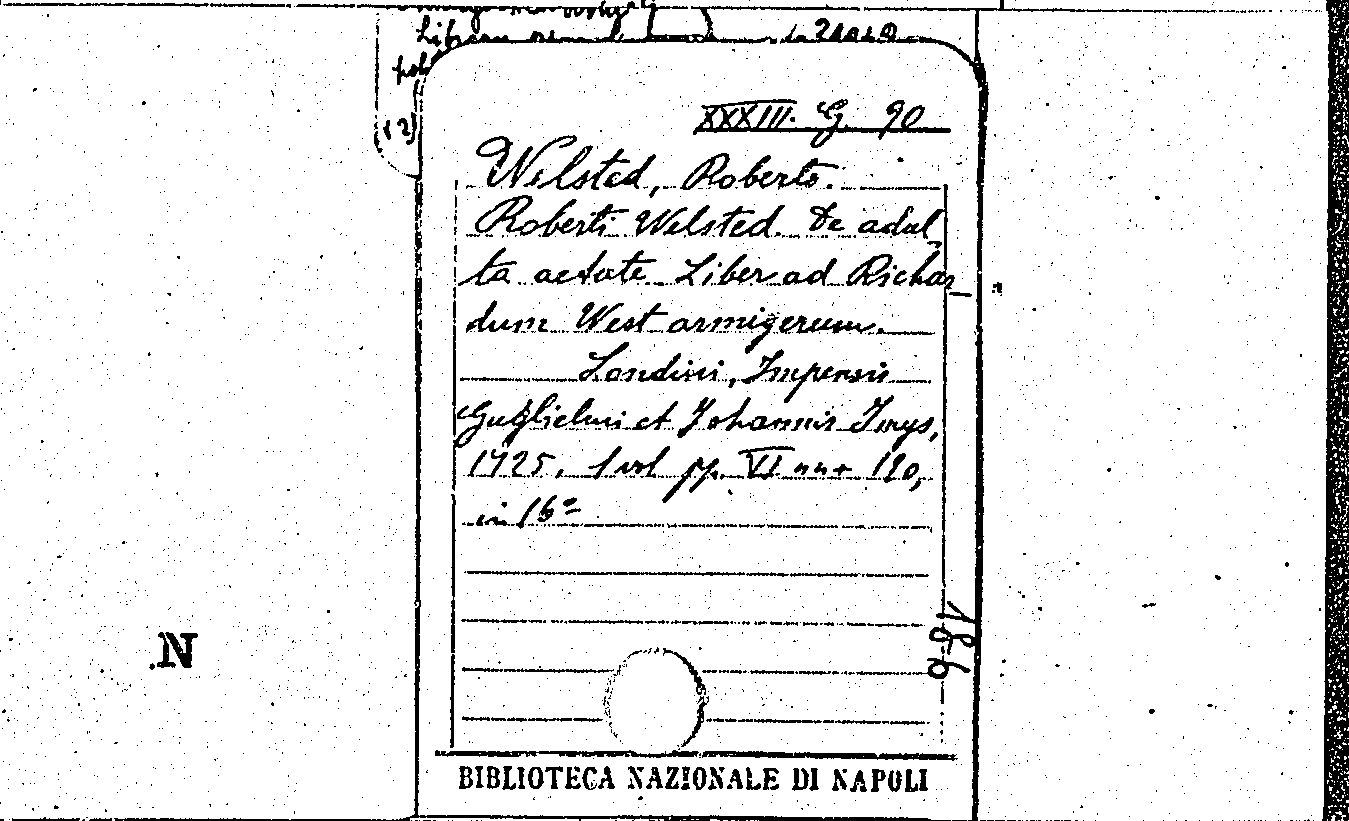 Libreria
(12)
XXXIII. G. 90
Welsted, Roberto.
Roberti Welsted. De adul_
ta aetate Liber ad Richar_
dum West armigerum.
Londini, Impensis
Guglielmi et Johannis Inys,
1725. 1 vol pp. VI nn + 120,
in 16º
186
N
BIBLIOTECA NAZIONALE DI NAPOLI